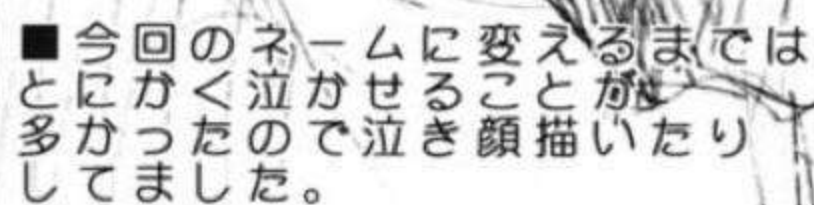 ■今回のネームに変えるまでは
とにかく泣かせることが
多かったので泣き顔描いたり
してました。